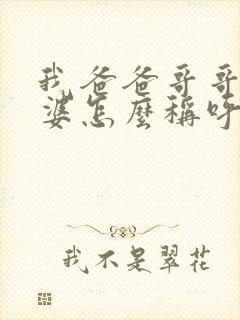 我爸爸哥哥
婆怎麼稱呼
我不是翠花